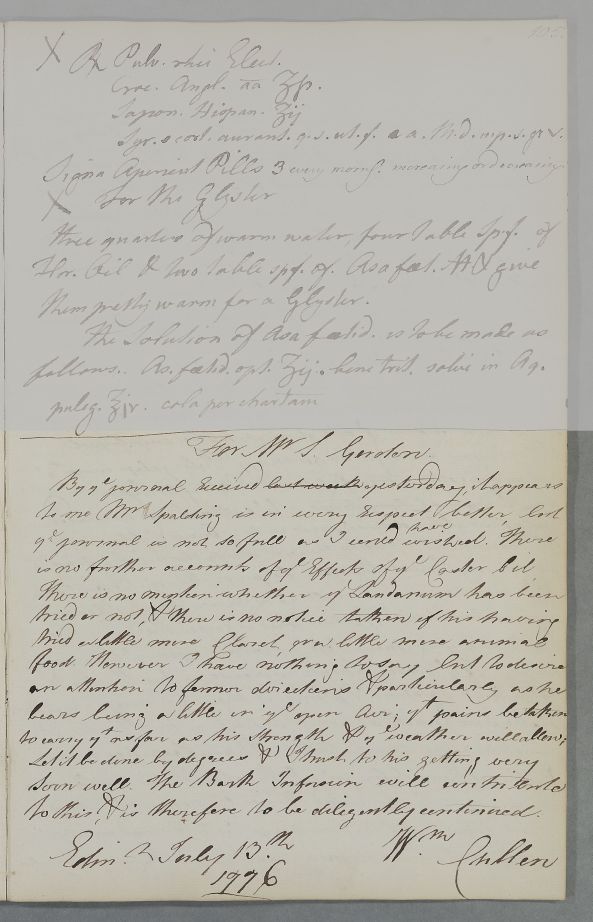 105.
X ℞ Pulv. rhei Elect.
Croc. Angl. aa ʒſs.
Sapon. Hispan. ʒij
Syr. e cort. aurant. q. s. ut. f. a. M. d. mp. s. gr v.
Signa Aperient Pills 3 every morng. increasing or decreasing
X For the Glyster
three quarters of warm water, four table spf. of
Flor. Oil & two table spf. of. Asafœt. M & give
them pretty warm for a Glyster.
The Solution of Asafœtid. is to be made as
follows. As. fœtid. opt. ʒij. bene trit. solve in Aq.
puleg. cola per chartam
For Mr S. Gordon.
By ye journal received last week yesterday, it appears
to me Mr Spalding is in every respect better, but
ye journal is not so full as I could have wished. There
is no further accounts of ye Effects of ye Castor Oil
There is no mention whether ye Laudanum has been
tried or not, & there is no notice taken of his having
tried a little more Claret, or a little more animal
food. However I have nothing to say but to desire
an attention to former directions & particularly as he
bears being a little in ye open Air; yt pains be taken
to carry yt as far as his strength & ye weather will allow;
Let it be done by degrees & I trust to his getting very
soon well. The Bark Infusion will contribute
to this, & is therefore to be diligently continued.
Edinr July 13th Wm
1776 Cullen